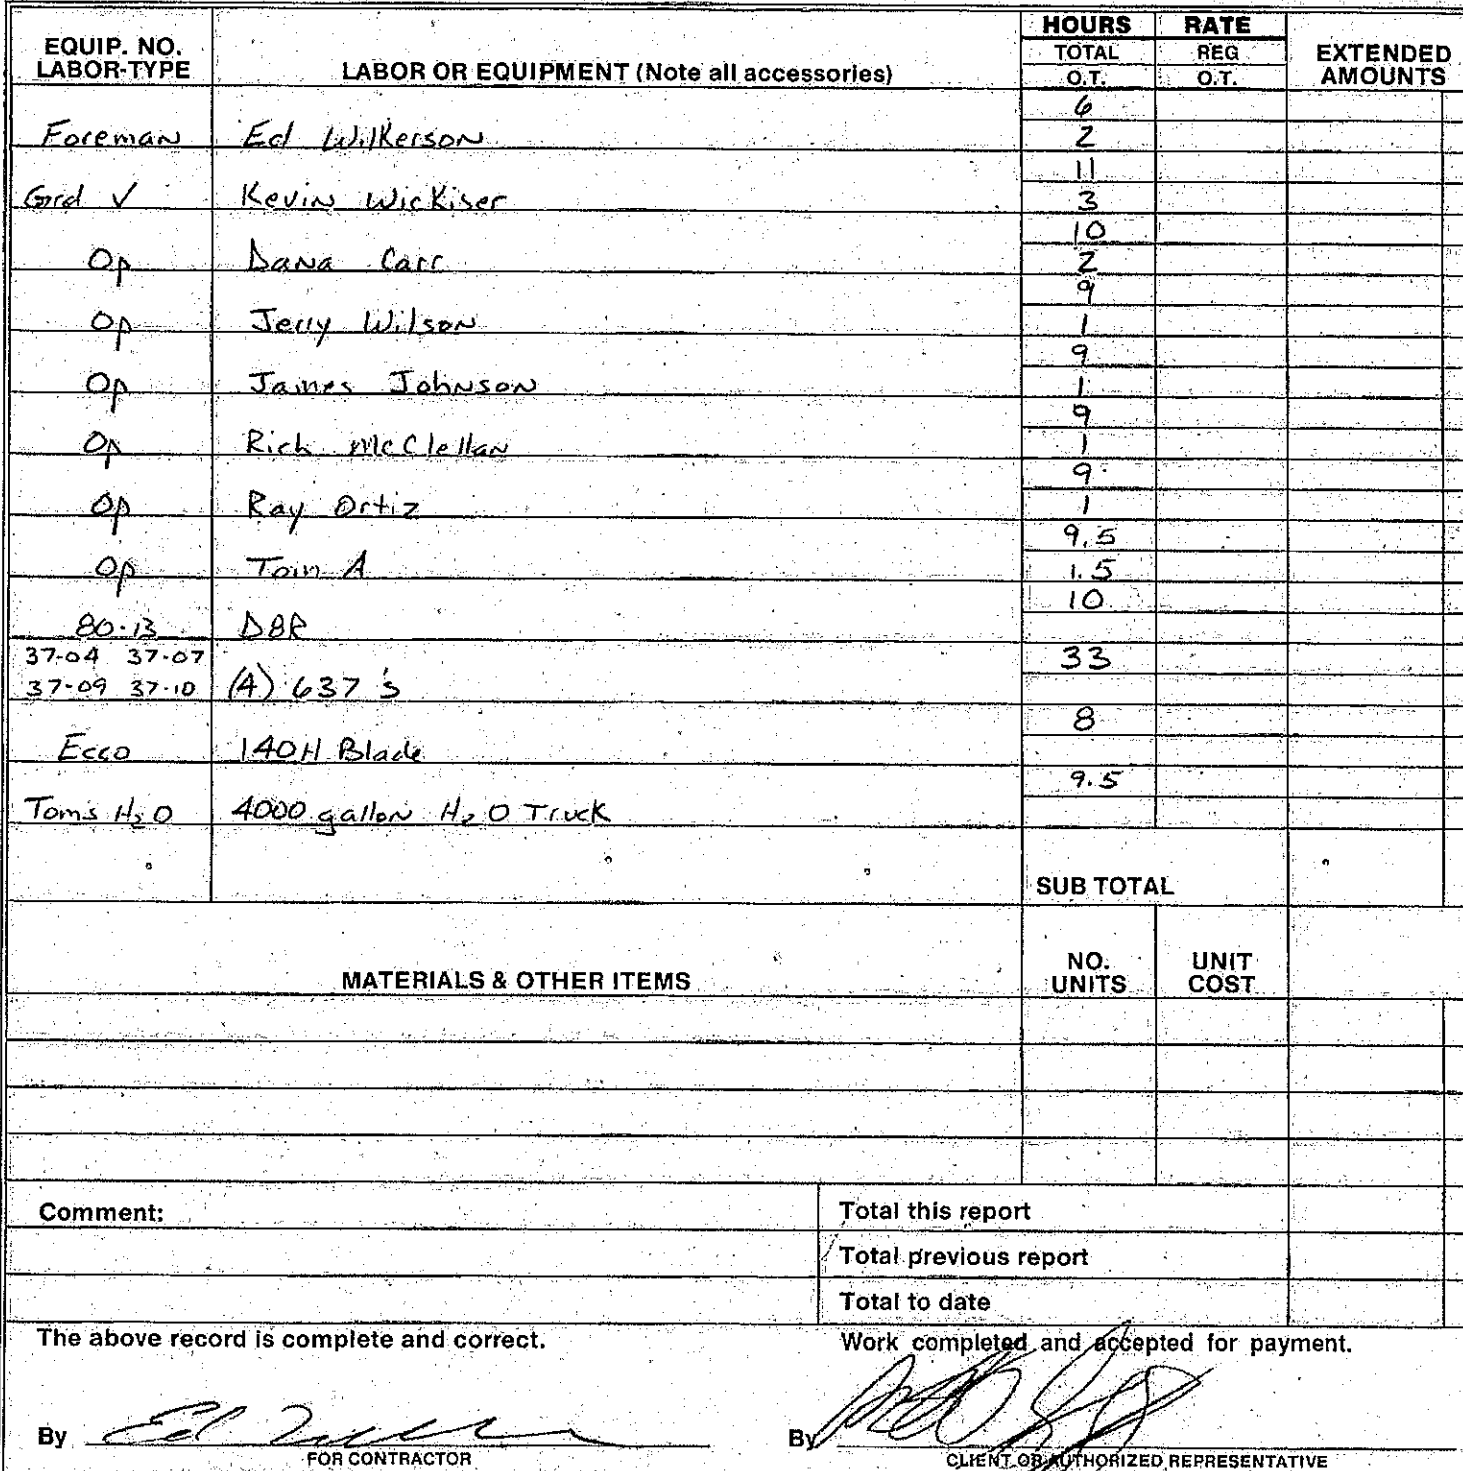 EQUIP. NO. LABOR-TYPE
LABOR OR EQUIPMENT (Note all accessories)
HOURS
TOTAL
O.T.
RATE
REG
O.T.
EXTENDED AMOUNTS
6
Foreman Ed Wilkerson 2
11
Grd ✓ Kevin Wickiser 3
10
Op Dana Carr 2
9
Op Jerry Wilson 1
9
Op James Johnson 1
9
Op Rich McClellan 1
9
Op Ray Ortiz 1
9.5
Op Tom A 1.5
10
80-13 D8R
37-04 37-07 33
37-09 37-10 (4) 637's
8
Ecco 140H Blade
9.5
Toms H2O 4000 gallon H2O Truck
SUB TOTAL
MATERIALS & OTHER ITEMS
NO. UNITS
UNIT COST
Comment:
Total this report
Total previous report
Total to date
The above record is complete and correct.
Work completed and accepted for payment.
By
By
FOR CONTRACTOR
CLIENT OR AUTHORIZED REPRESENTATIVE